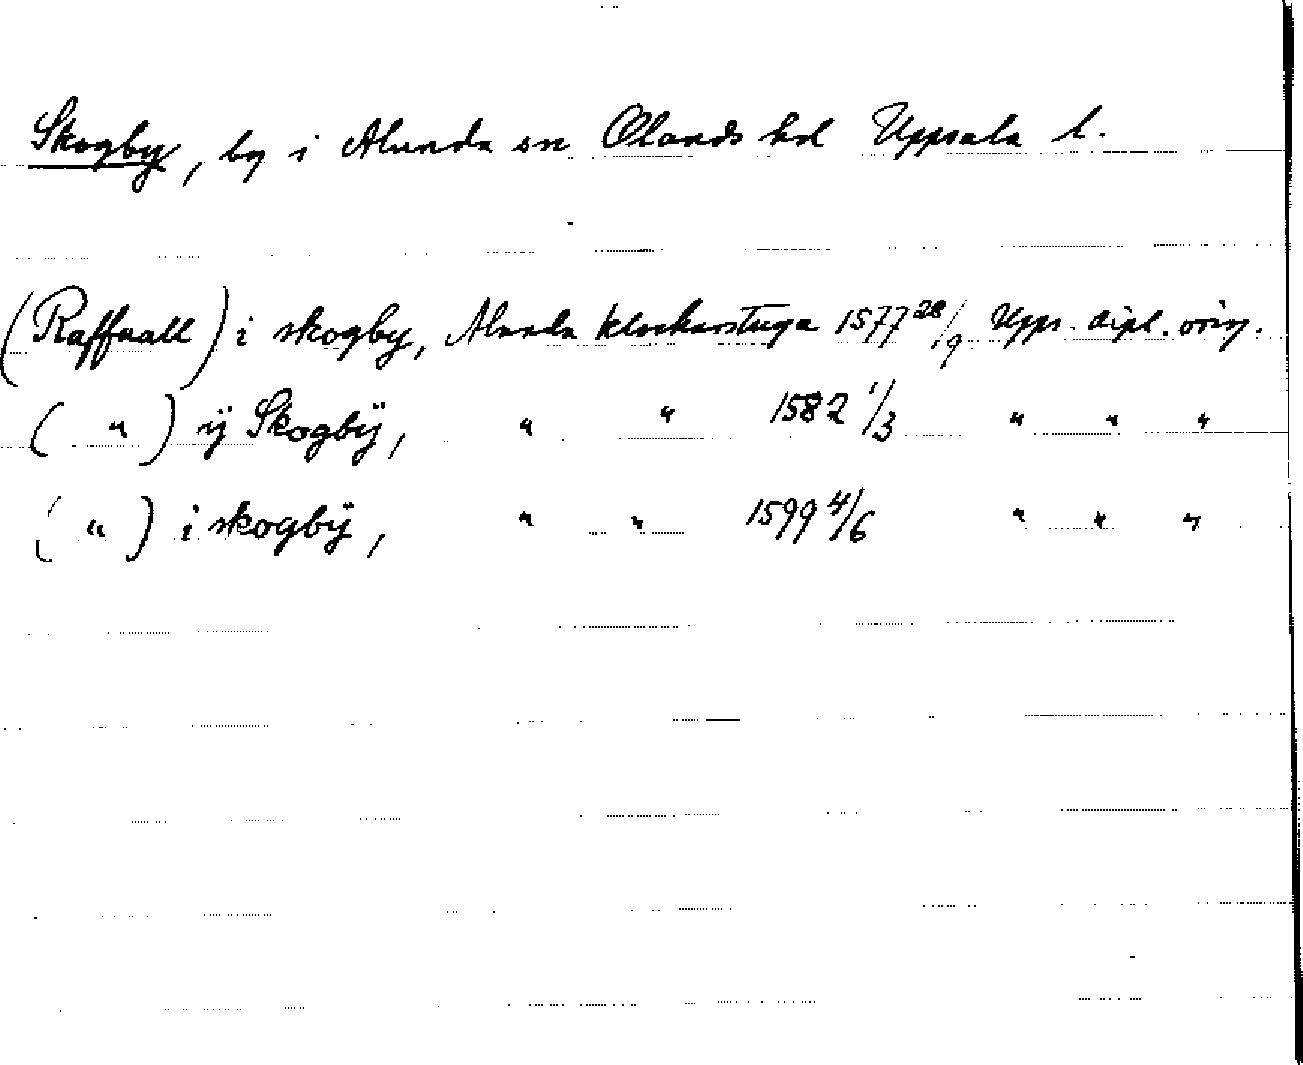 Skogby, by i Alunda sn Olands hd Uppsala l.
(Raffuall) i skogby, Alunda klockarstuga 1577 28/9 Upps. dipl. orig.
( " ) ÿ Skogbÿ, " " 1582 1/3 " " "
( " ) i skogbÿ, " " 1599 4/6 " " "